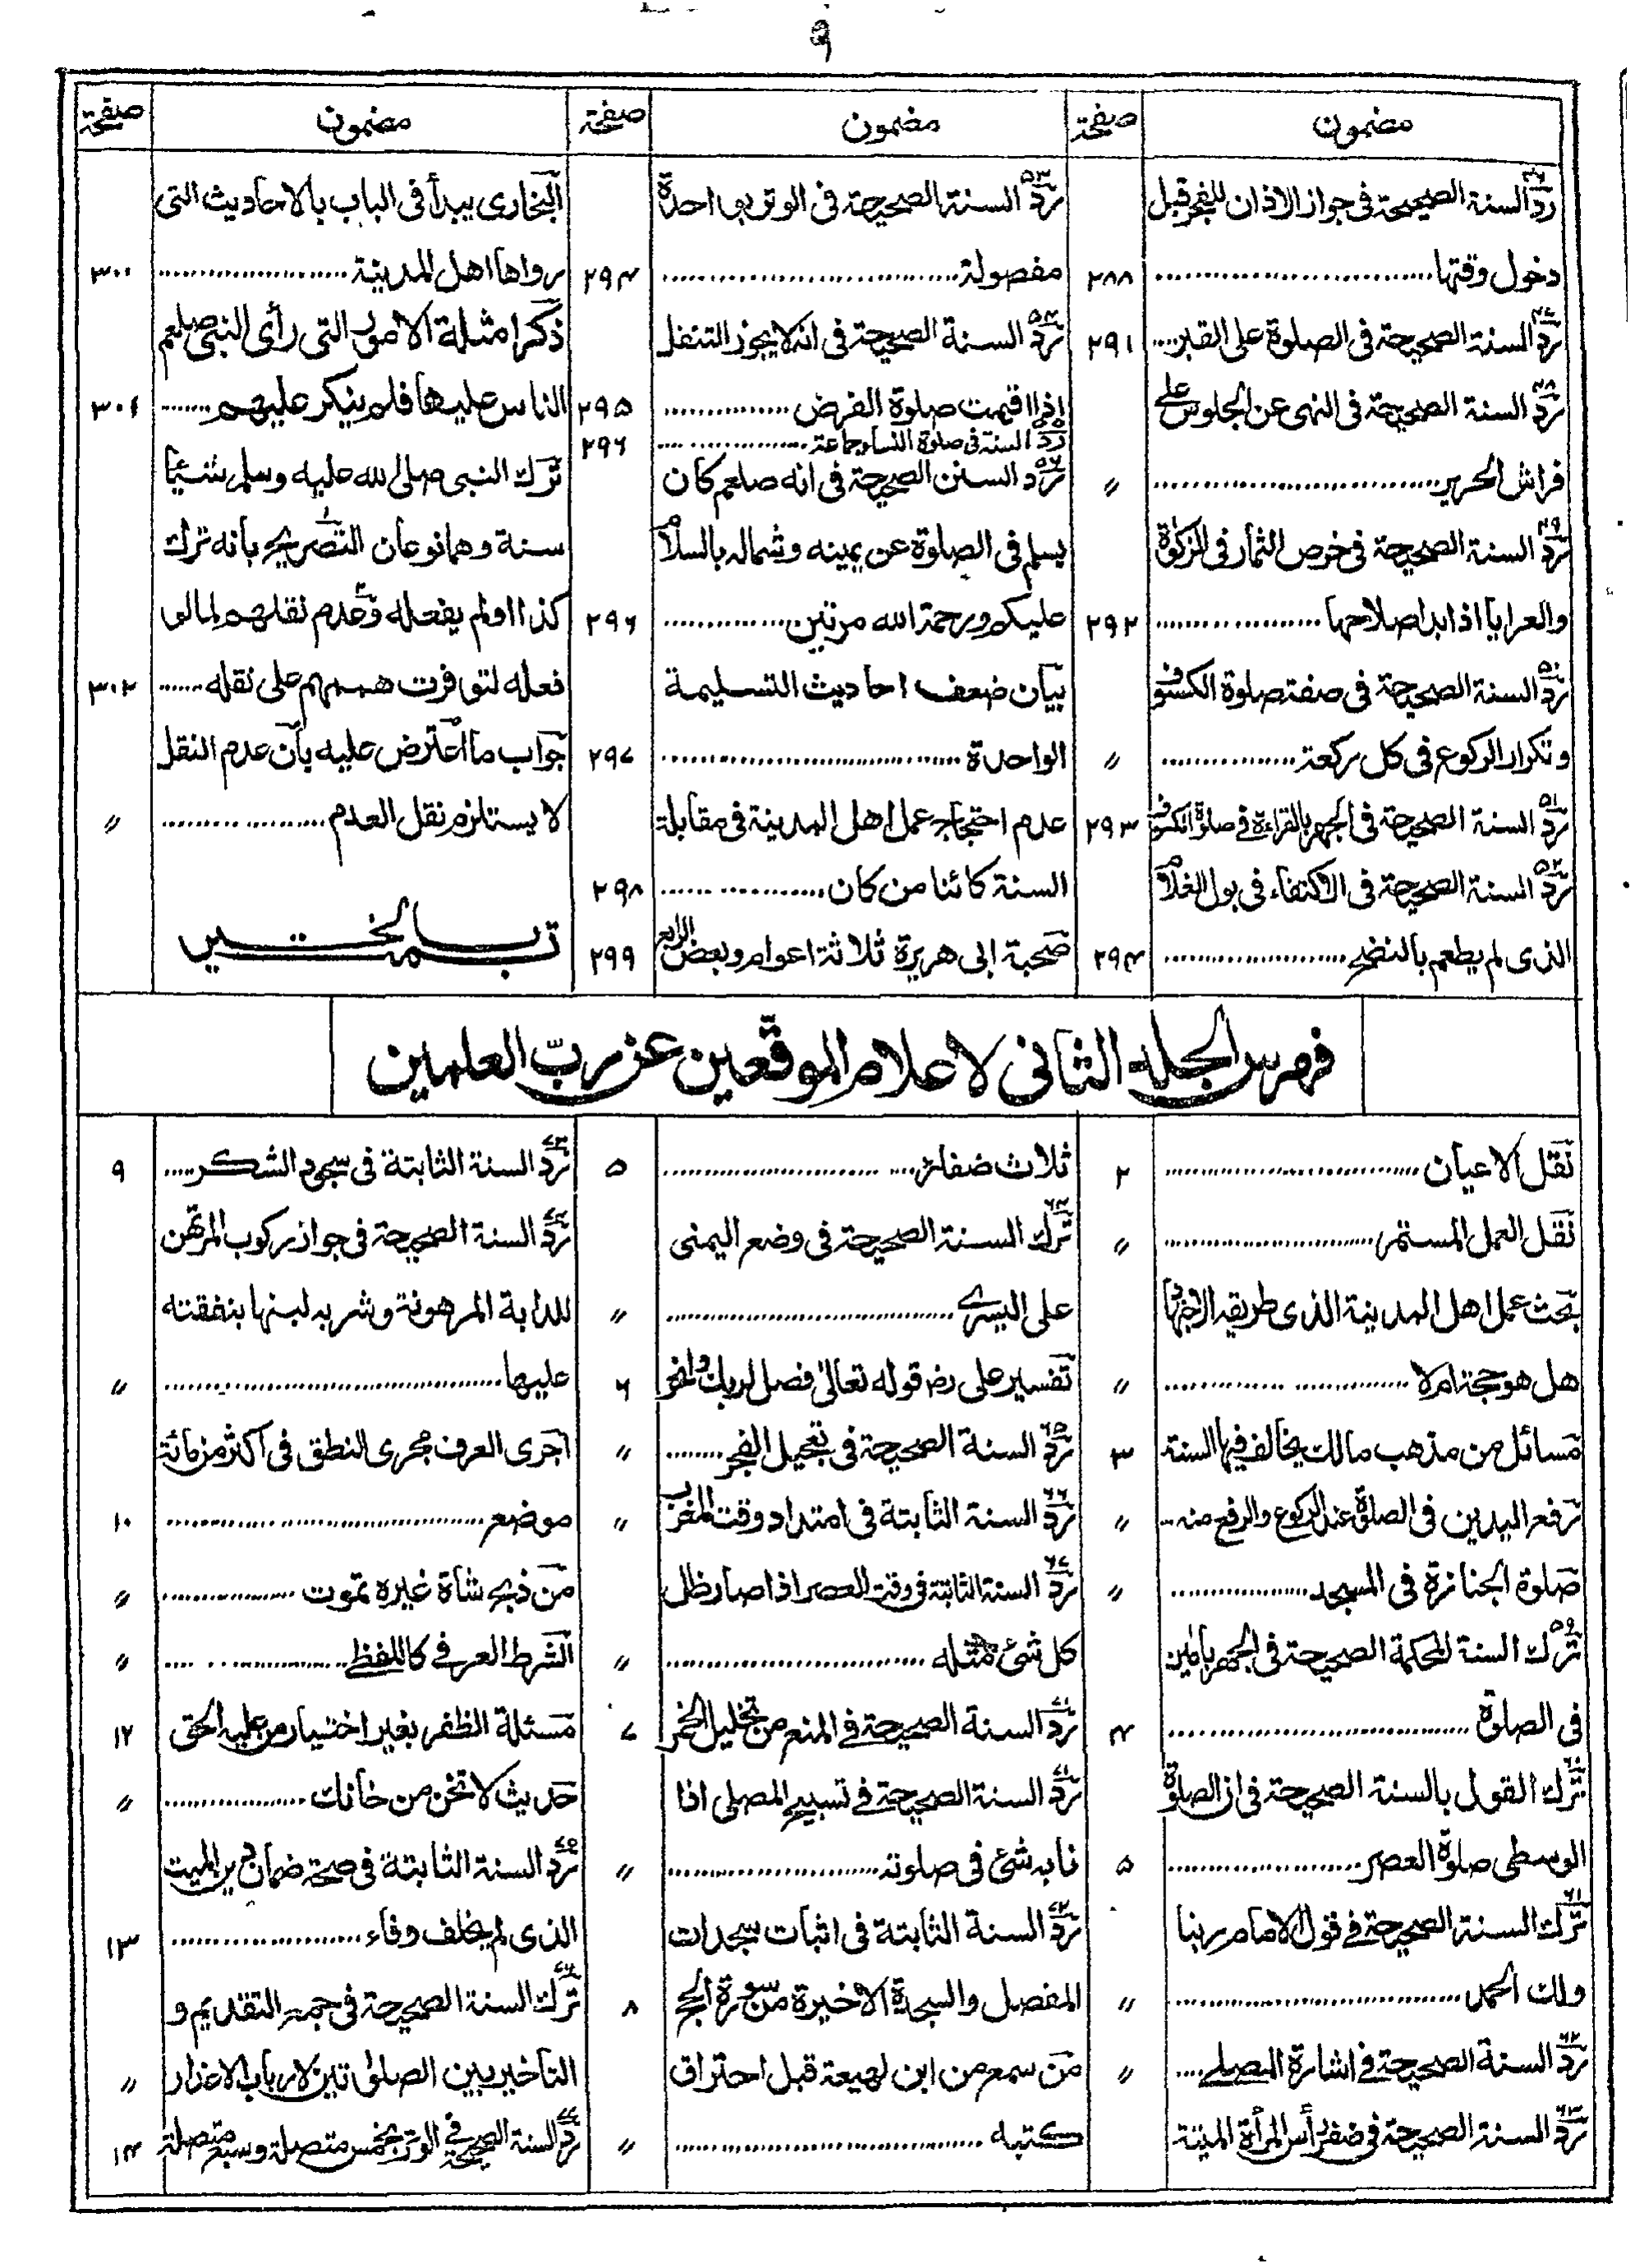 ٩
مضمون صفحة مضمون صفحة مضمون صفحة
٤٦ ردّ السنة الصحيحة فى جواز الاذان للفجر قبل
دخول وقتها ........ ٢٨٨
٤٧ ردّ السنة الصحيحة فى الصلوة على القبر .... ٢٩١
٤٨ ردّ السنة الصحيحة فى النهى عن الجلوس على
فراش الحرير ........ ״
٤٩ ردّ السنة الصحيحة فى خرص الثمار فى الزكوة
والعرايا اذا بدا صلاحها ........ ٢٩٢
٥٠ ردّ السنة الصحيحة فى صفة صلوة الكسوف
وتكرار الركوع فى كل ركعة ........ ״
٥١ ردّ السنة الصحيحة فى الجهر بالقراءة فى صلوة الكسوف ٢٩٣
٥٢ ردّ السنة الصحيحة فى الاكتفاء فى بول الغلام
الذى لم يطعم بالنضح ........ ٢٩٤
٥٣ ردّ السنة الصحيحة فى الوتر بواحدة
مفصولة ........ ٢٩٤
٥٤ ردّ السنة الصحيحة فى انه لا يجوز التنفل
اذا اقيمت صلوة الفرض ........ ٢٩٥
٥٥ ردّ السنة فى صلوة النساء جماعة ........ ٢٩٦
٥٦ ردّ السنن الصحيحة فى انه صلعم كان
يسلم فى الصلوة عن يمينه وشماله بالسلام
عليكم ورحمة الله مرتين ........ ٢٩٦
بيان ضعف احاديث التسليمة
الواحدة ........ ٢٩٧
عدم احتجاج عمل اهل المدينة فى مقابلة
السنة كائنا من كان ........ ٢٩٨
صحبة ابى هريرة ثلاثة اعوام وبعض الرابع ٢٩٩
البخارى يبدأ فى الباب بالاحاديث التى
رواها اهل المدينة ........ ٣٠٠
ذكر امثلة الامور التى رأى النبى صلعم
الناس عليها فلم ينكر عليهم ........ ٣٠١
ترك النبى صلى الله عليه وسلم شيئا
سنة وهما نوعان ١ التصريح بانه ترك
كذا اولم يفعله ٢ وعدم نقلهم لما لو
فعله لتوفرت هممهم على نقله ........ ٣٠٢
جواب ما اعترض عليه بأن عدم النقل
لا يستلزم نقل العدم ........ ״
تمت بالخير
فهرس الجلد الثانى لاعلام الموقعين عن رب العلمين
نقل الاعيان ........ ٢
نقل العمل المستمر ........ ״
بحث عمل اهل المدينة الذى طريقه الاجتهاد
هل هو حجة ام لا ........ ״
مسائل من مذهب مالك يخالف فيها السنة ٣
رفع اليدين فى الصلوة عند الركوع والرفع منه ... ״
صلوة الجنازة فى المسجد ........ ״
٥٩ ترك السنة المحكمة الصحيحة فى الجهر بامين
فى الصلوة ........ ٤
٦٠ ترك القول بالسنة الصحيحة فى ان الصلوة
الوسطى صلوة العصر ........ ٥
٦١ ترك السنة الصحيحة فى قول الامام ربنا
ولك الحمد ........ ״
٦٢ ردّ السنة الصحيحة فى اشارة المصلى .... ״
٦٣ ردّ السنة الصحيحة فى ضفر رأس المرأة الميتة
ثلاث ضفائر ........ ٥
٦٤ ترك السنة الصحيحة فى وضع اليمنى
على اليسرى ........ ״
تفسير على رض قوله تعالى فصل لربك وانحر ٦
٦٥ ردّ السنة الصحيحة فى تعجيل الفجر ........ ״
٦٦ ردّ السنة الثابتة فى امتداد وقت المغرب ״
٦٧ ردّ السنة الثابتة فى وقت العصر اذا صار ظل
كل شئ مثله ........ ״
ردّ السنة الصحيحة فى المنع من تخليل الخمر ٧
٧١ ردّ السنة الصحيحة فى تسبيح المصلى اذا
نابه شئ فى صلوته ........ ״
٧٢ ردّ السنة الثابتة فى اثبات سجدات
المفصل والسجدة الاخيرة من سورة الحج ٨
من سمع من ابن لهيعة قبل احتراق
كتبه ........ ״
٧٣ ردّ السنة الثابتة فى سجود الشكر ..... ٩
٧٤ ردّ السنة الصحيحة فى جواز ركوب المرتهن
للدابة المرهونة وشربه لبنها بنفقته
عليها ........ ״
اجرى العرف مجرى النطق فى اكثر من مائة
موضع ........ ١٠
من ذبح شاة غيره تموت ........ ״
الشرط العرفى كاللفظى ........ ״
مسئلة الظفر بغير اختيار من عليه الحق ١٢
حديث لا تخن من خانك ........ ״
٧٥ ردّ السنة الثابتة فى صحة ضمان دين الميت
الذى لم يخلف وفاء ........ ١٣
٧٦ ترك السنة الصحيحة فى جمع التقديم و
التاخير بين الصلوتين لارباب الاعذار ״
٧٧ ردّ السنة الصحيحة فى الوتر بخمس متصلة وسبع متصلة ١٤